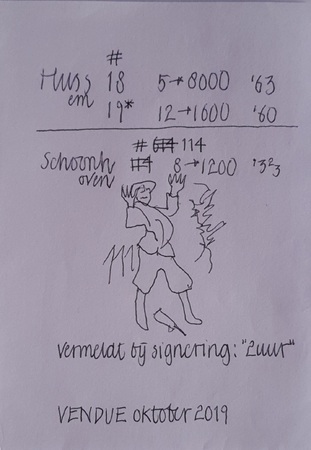 #
Huss 18 5→8000 '63
em 19* 12→1600 '60
# 114
Schoonh 8→1200 '323
oven
vermeldt bij signering: "Zuur"
VENDUE oktober 2019